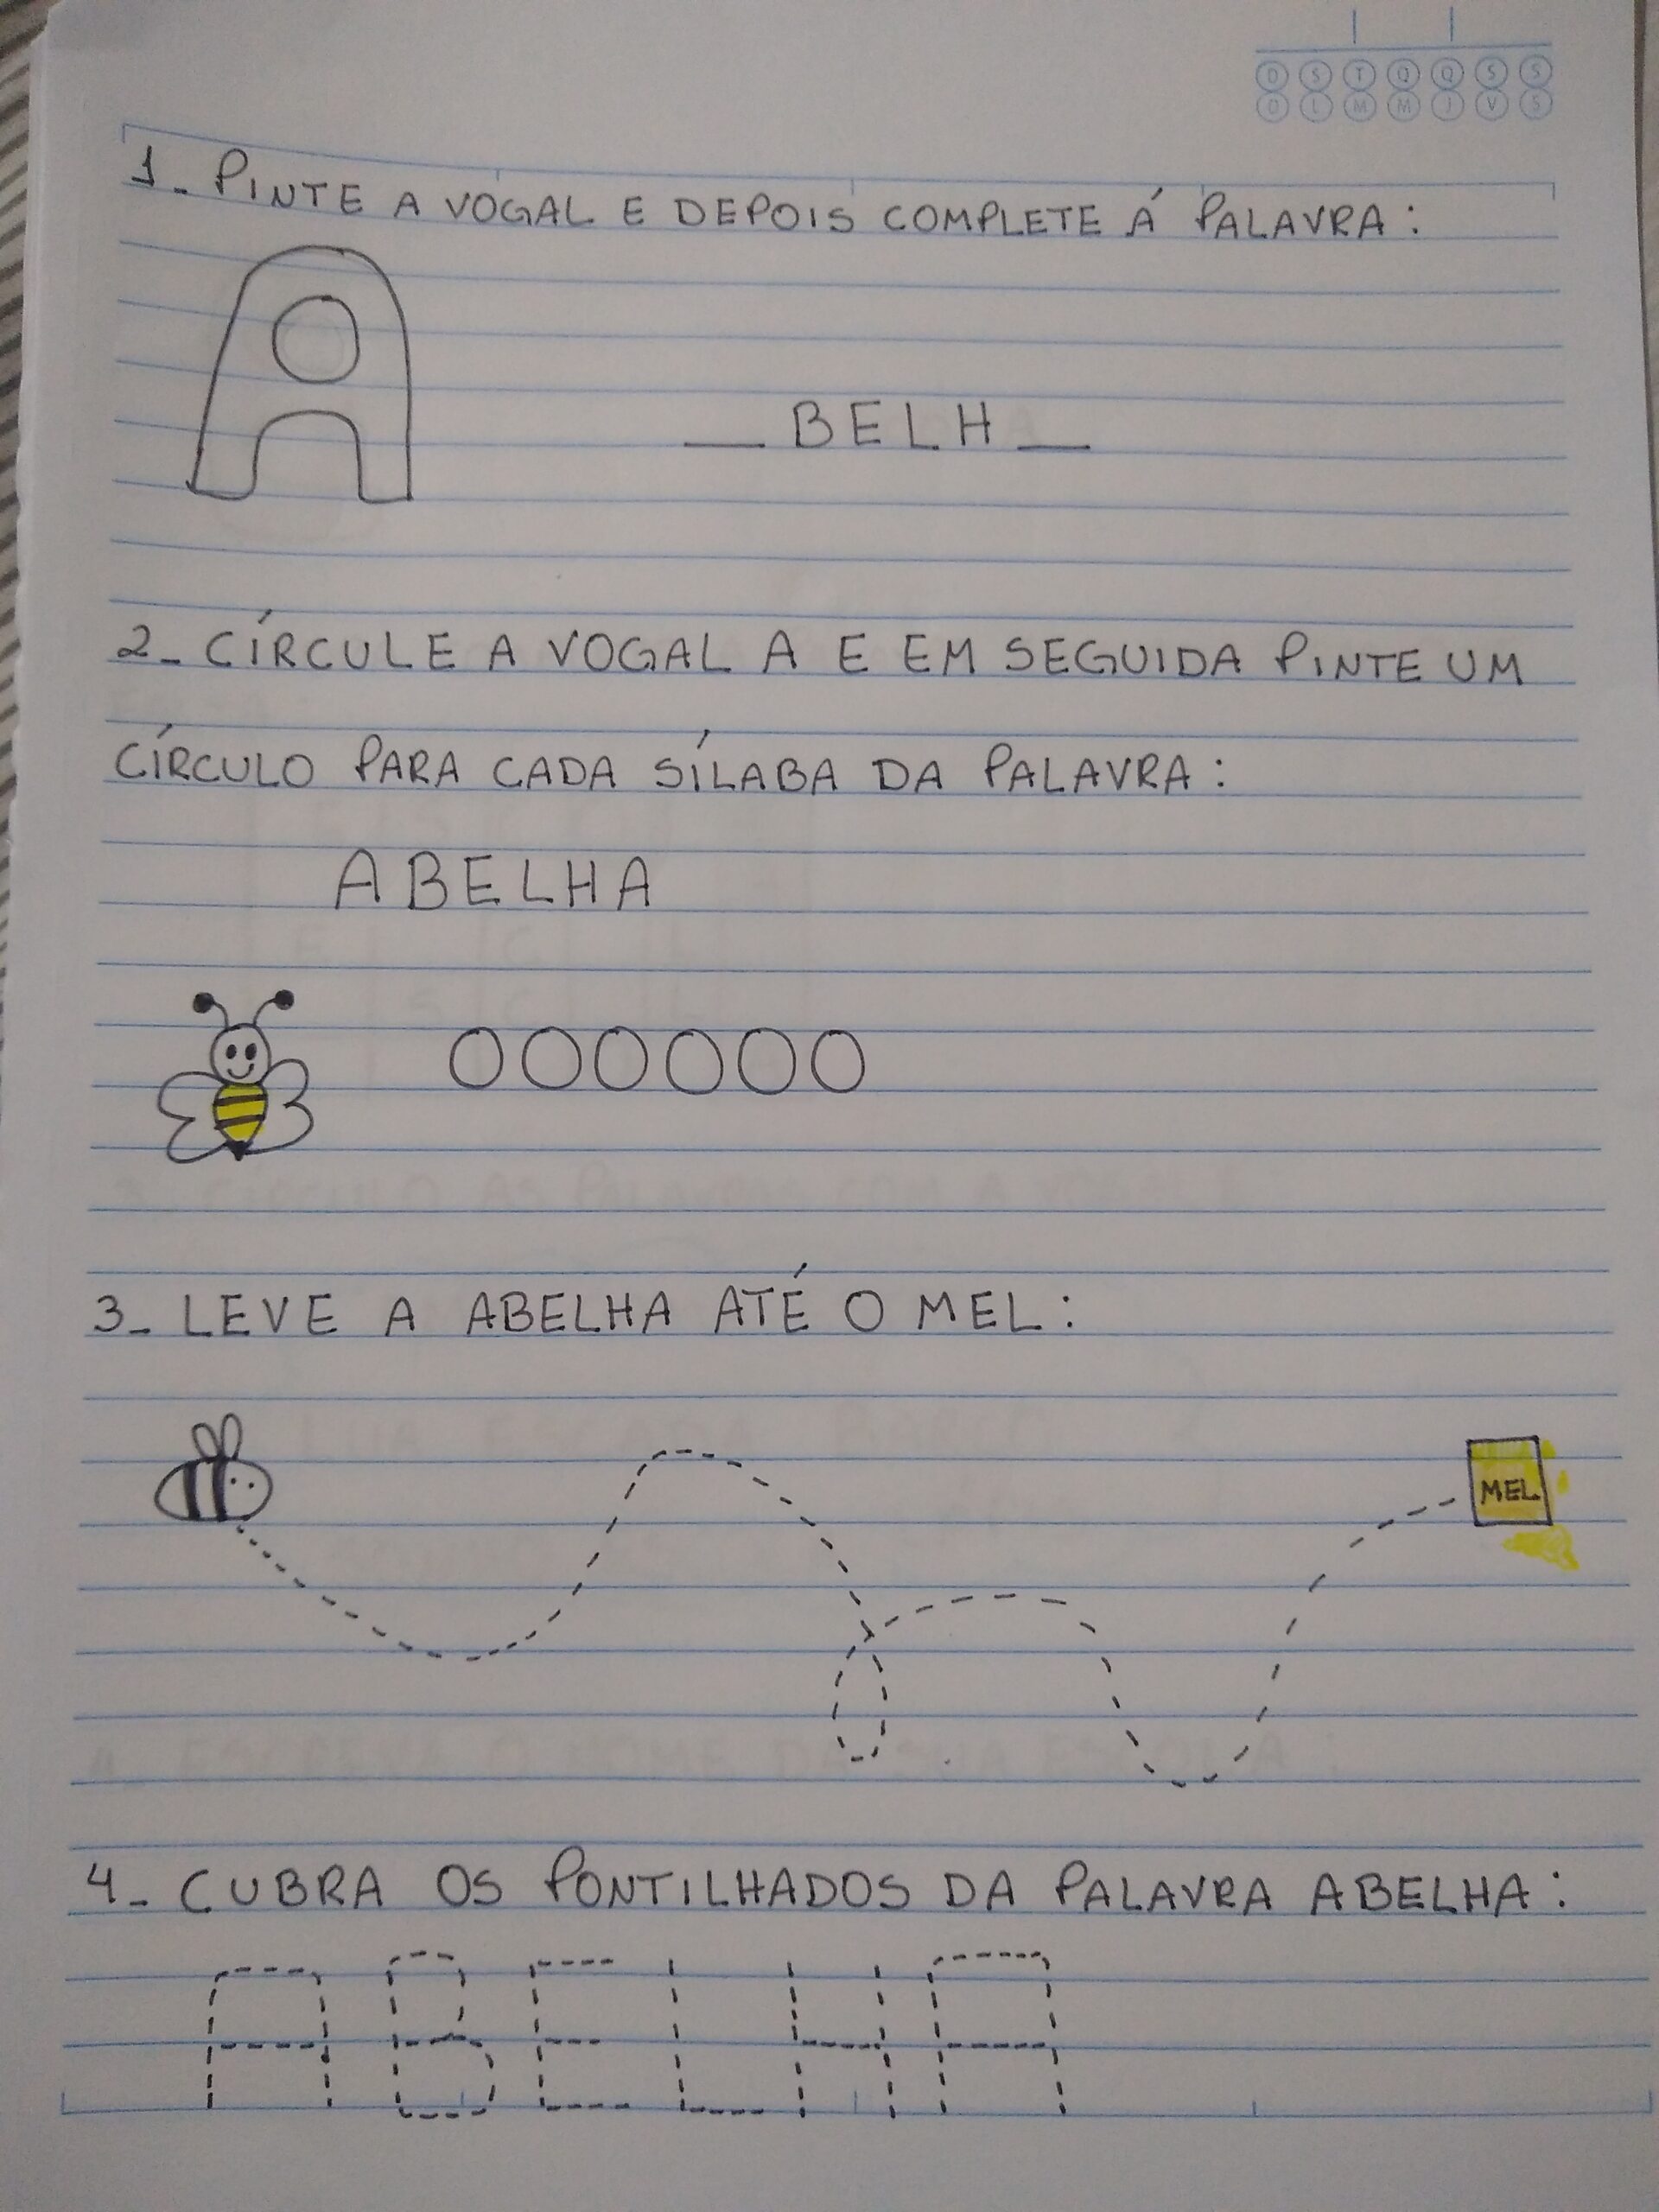 D S T Q Q S S
D L M M J V S
1- PINTE A VOGAL E DEPOIS COMPLETE Á PALAVRA:
A
__ BELH __
2- CÍRCULE A VOGAL A E EM SEGUIDA PINTE UM
CÍRCULO PARA CADA SÍLABA DA PALAVRA:
ABELHA
3- LEVE A ABELHA ATÉ O MEL:
MEL
4- CUBRA OS PONTILHADOS DA PALAVRA ABELHA:
ABELHA